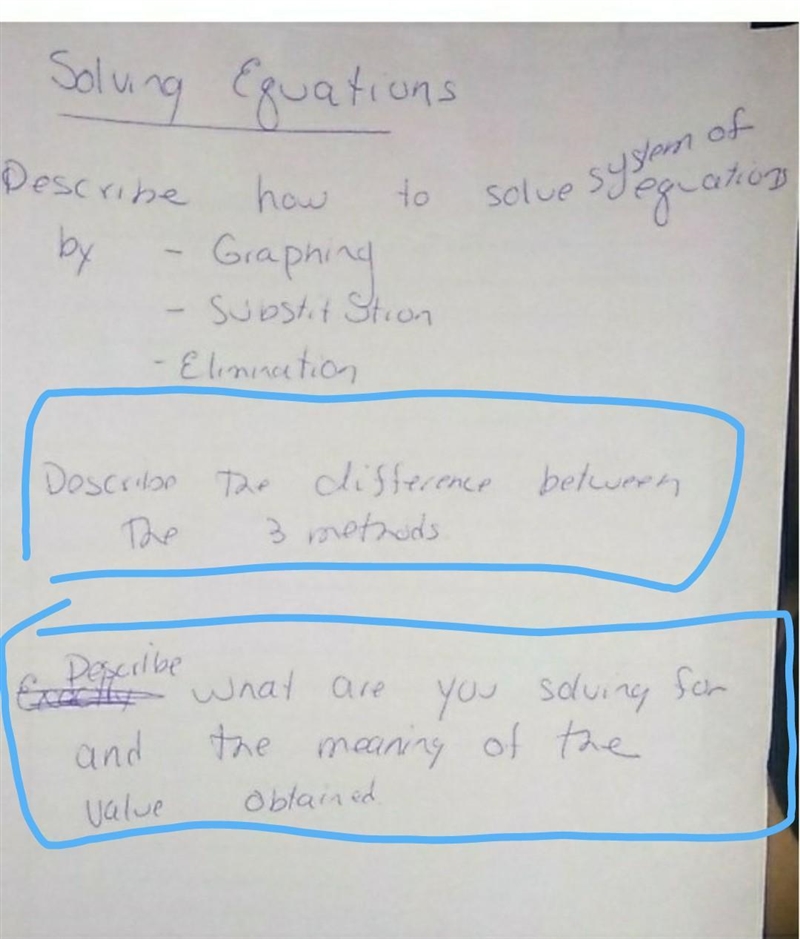 Solving Equations
Describe how to solve system of equations
by - Graphing
- Substitution
- Elimination
Describe the difference between
The 3 methods
Describe
Exactly what are you solving for
and the meaning of the
value obtained